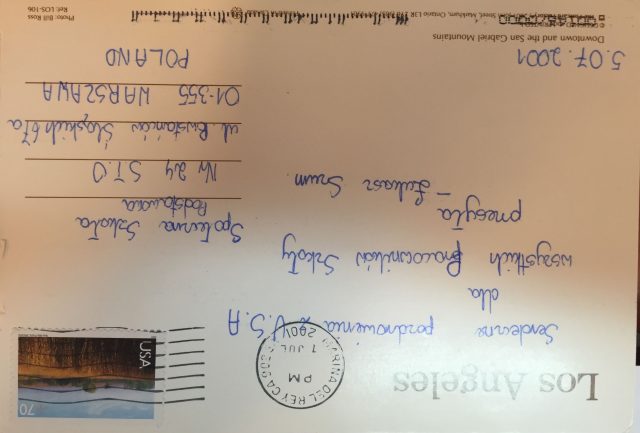 Los Angeles
MARINA DEL REY CA
PM
JUL
2001
USA
70
Serdeczne pozdrowienia z U.S.A
dla
wszystkich Pracowników Szkoły
przesyła
– Łukasz Szum
5.07.2001
Społeczna Szkoła
Podstawowa
Nr 24 STO
ul. Powstańców Śląskich 67a
01-355 WARSZAWA
POLAND
Downtown and the San Gabriel Mountains
Street, Markham, Ontario L3R
Photo: Bill Ross
Ref: LOS-106